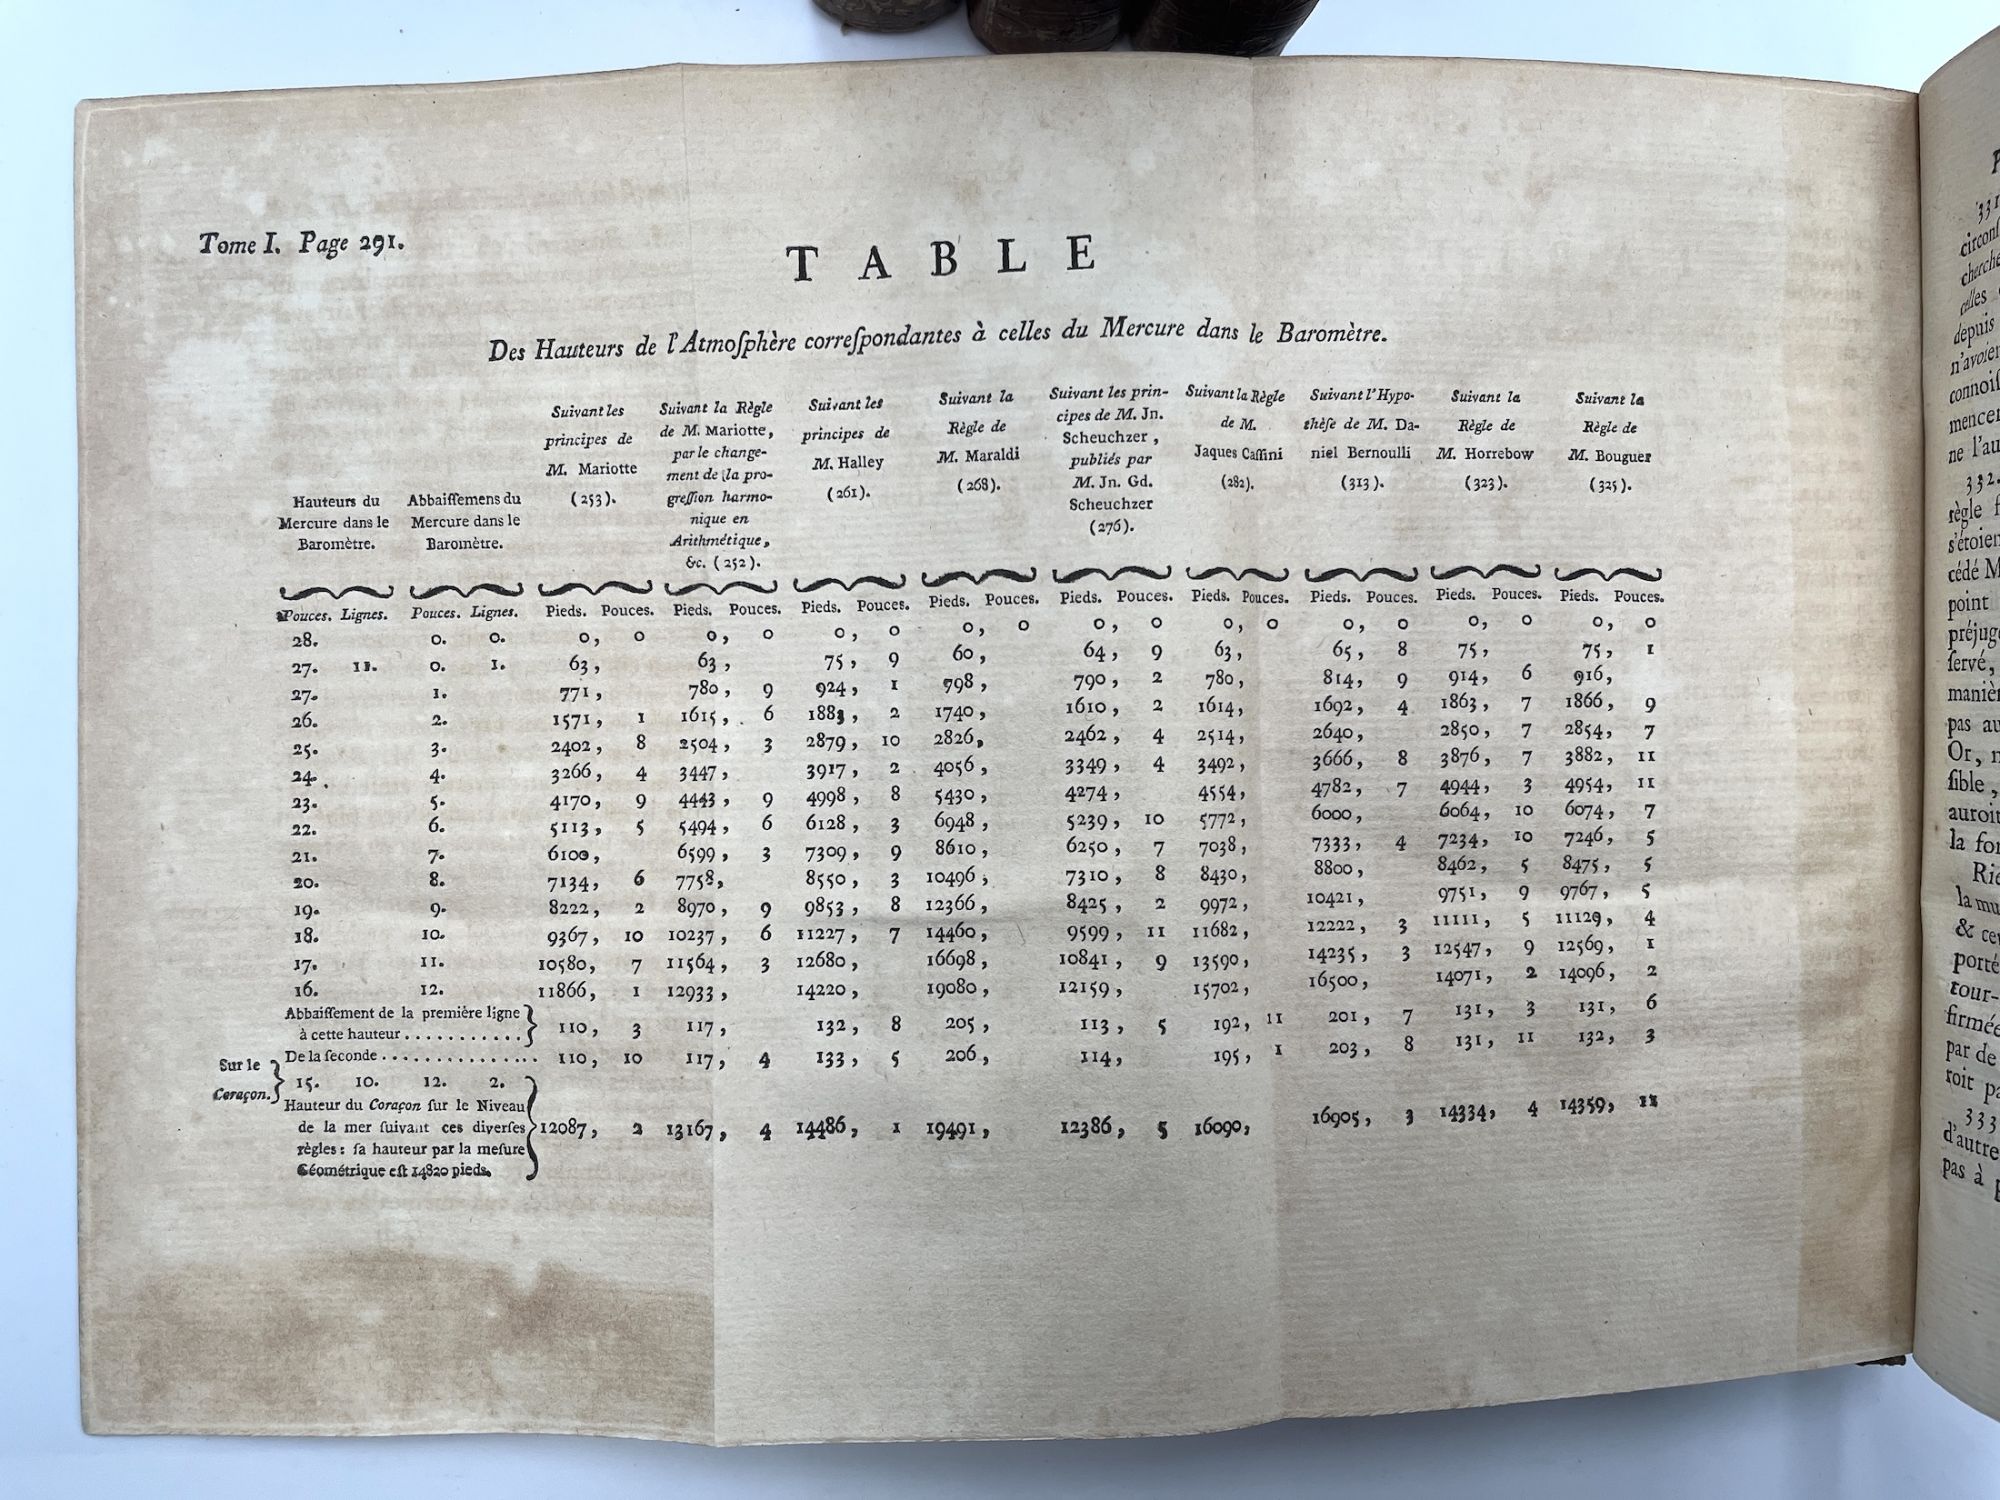 Tome I. Page 291.
TABLE
Des Hauteurs de l'Atmoſphère correſpondantes à celles du Mercure dans le Baromètre.
Hauteurs du
Mercure dans le
Baromètre.
Abbaiſſemens du
Mercure dans le
Baromètre.
Suivant les
principes de
M. Mariotte
(253).
Suivant la Règle
de M. Mariotte,
par le change-
ment de la pro-
greſſion harmo-
nique en
Arithmétique,
&c. (252).
Suivant les
principes de
M. Halley
(261).
Suivant la
Règle de
M. Maraldi
(268).
Suivant les prin-
cipes de M. Jn.
Scheuchzer,
publiés par
M. Jn. Gd.
Scheuchzer
(276).
Suivant la Règle
de M.
Jaques Caſſini
(282).
Suivant l'Hypo-
thèſe de M. Da-
niel Bernoulli
(313).
Suivant la
Règle de
M. Horrebow
(323).
Suivant la
Règle de
M. Bouguer
(325).
Pouces. Lignes. Pouces. Lignes. Pieds. Pouces. Pieds. Pouces. Pieds. Pouces. Pieds. Pouces. Pieds. Pouces. Pieds. Pouces. Pieds. Pouces. Pieds. Pouces. Pieds. Pouces.
28. 0. 0. 0, 0 0, 0 0, 0 0, 0 0, 0 0, 0 0, 0 0, 0 0, 0
27. 11. 0. 1. 63, 63, 75, 9 60, 64, 9 63, 65, 8 75, 75, 1
27. 1. 771, 780, 9 924, 1 798, 790, 2 780, 814, 9 914, 6 916,
26. 2. 1571, 1 1615, 6 1883, 2 1740, 1610, 2 1614, 1692, 4 1863, 7 1866, 9
25. 3. 2402, 8 2504, 3 2879, 10 2826, 2462, 4 2514, 2640, 2850, 7 2854, 7
24. 4. 3266, 4 3447, 3917, 2 4056, 3349, 4 3492, 3666, 8 3876, 7 3882, 11
23. 5. 4170, 9 4443, 9 4998, 8 5430, 4274, 4554, 4782, 7 4944, 3 4954, 11
22. 6. 5113, 5 5494, 6 6128, 3 6948, 5239, 10 5772, 6000, 6064, 10 6074, 7
21. 7. 6100, 6599, 3 7309, 9 8610, 6250, 7 7038, 7333, 4 7234, 10 7246, 5
20. 8. 7134, 6 7758, 8550, 3 10496, 7310, 8 8430, 8800, 8462, 5 8475, 5
19. 9. 8222, 2 8970, 9 9853, 8 12366, 8425, 2 9972, 10421, 9751, 9 9767, 5
18. 10. 9367, 10 10237, 6 11227, 7 14460, 9599, 11 11682, 12222, 3 11111, 5 11129, 4
17. 11. 10580, 7 11564, 3 12680, 16698, 10841, 9 13590, 14235, 3 12547, 9 12569, 1
16. 12. 11866, 1 12933, 14220, 19080, 12159, 15702, 16500, 14071, 2 14096, 2
Abbaiſſement de la première ligne
à cette hauteur . . . . . . . . . . . 110, 3 117, 132, 8 205, 113, 5 192, 11 201, 7 131, 3 131, 6
De la ſeconde . . . . . . . . . . . . . . . 110, 10 117, 4 133, 5 206, 114, 195, 1 203, 8 131, 11 132, 3
Sur le
Coraçon.
15. 10. 12. 2.
Hauteur du Coraçon ſur le Niveau
de la mer ſuivant ces diverſes
règles: ſa hauteur par la meſure
Géométrique eſt 14820 pieds.
12087, 2 13167, 4 14486, 1 19491, 12386, 5 16090, 16905, 3 14334, 4 14359, 11
331
circonſ
cherche
celles
depuis
n'avoien
connoiſ
mencer
ne l'au
332.
règle f
s'étoien
cédé M
point
préjug
ſervé,
manièr
pas au
Or, n
ſible,
auroit
la for
Rie
la mu
& ce
porté
tour-
firmée
par de
roit pa
333
d'autre
pas à